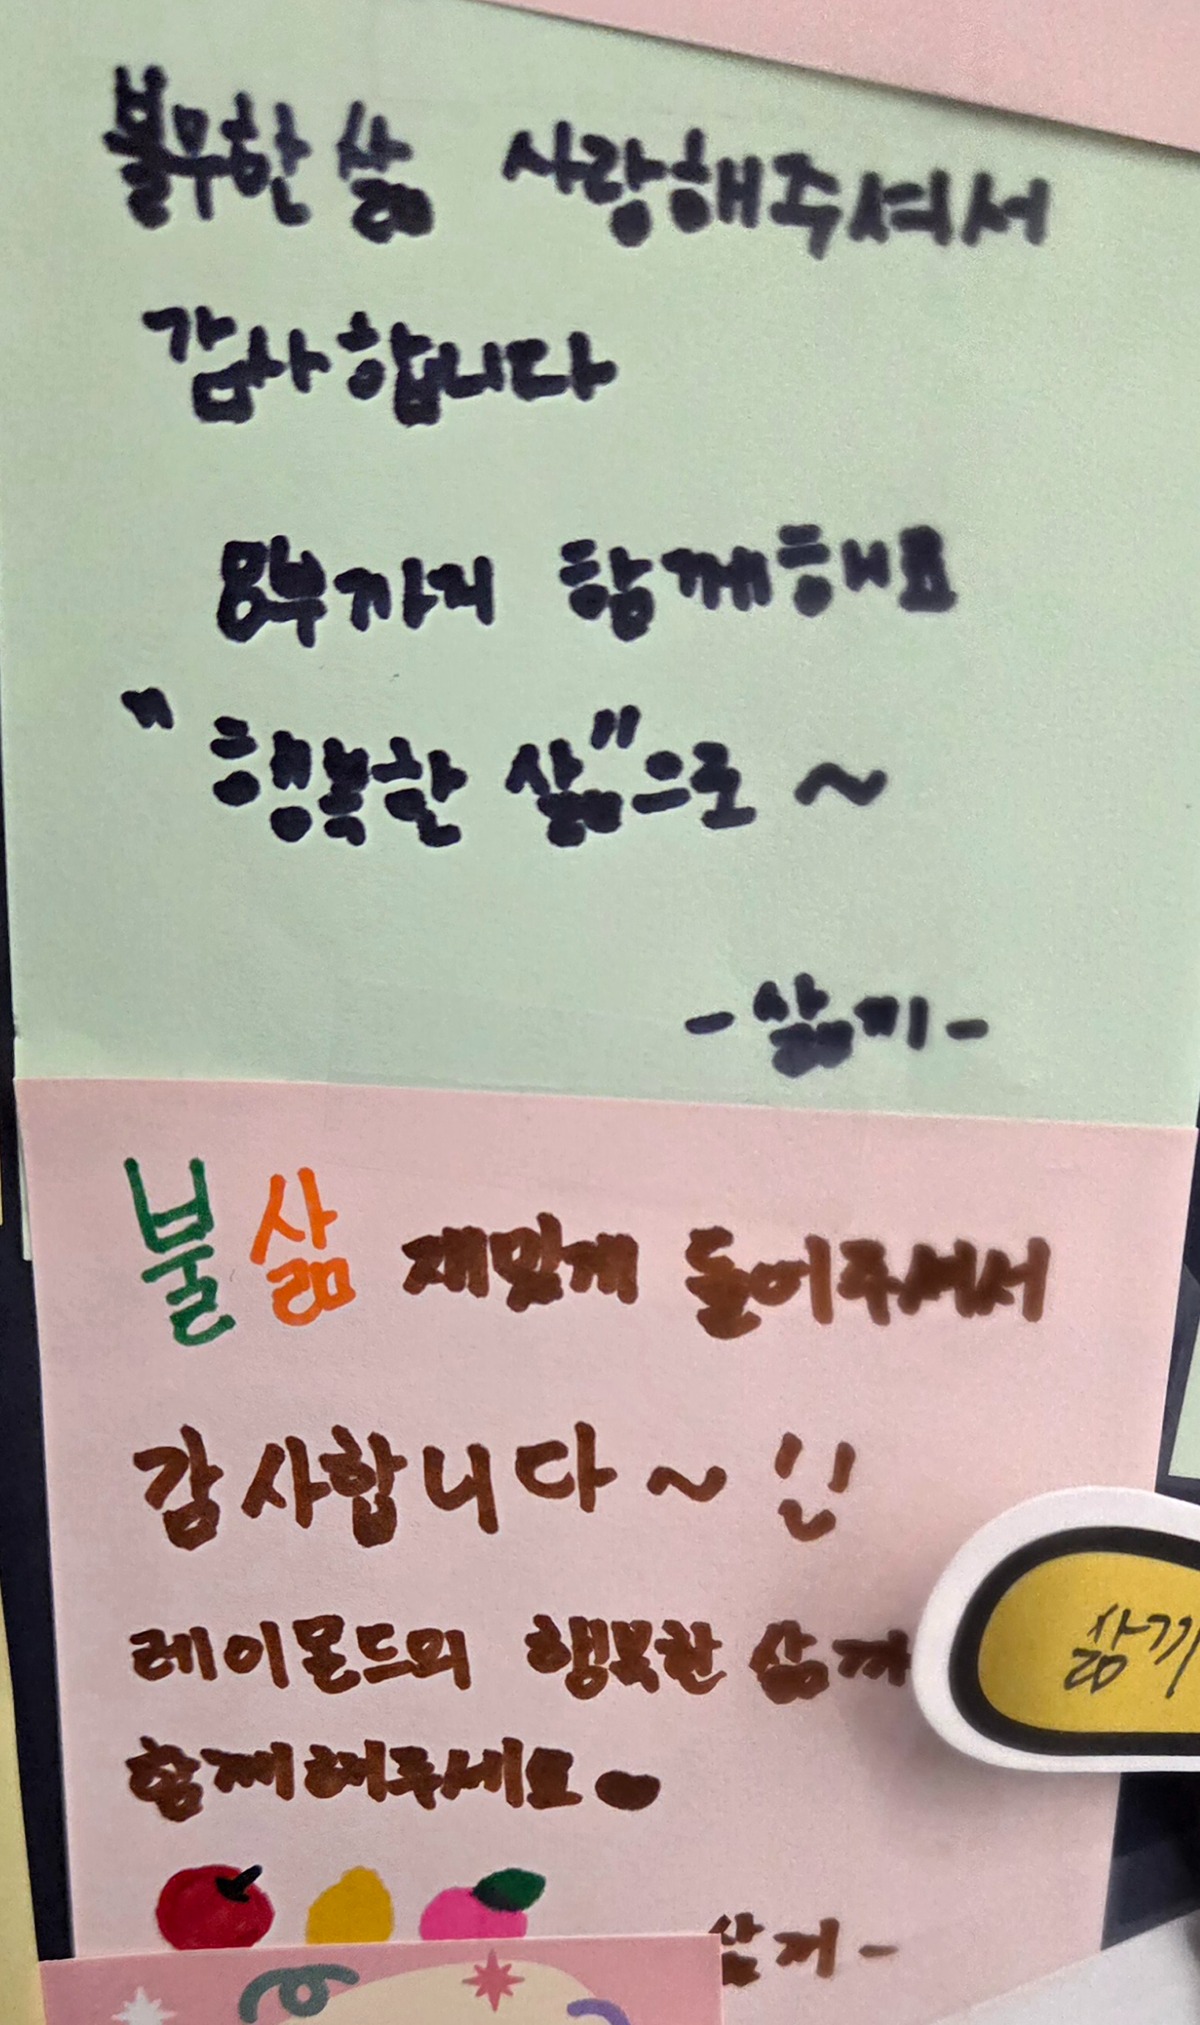 불우한 삶 사랑해주셔서
감사합니다
8부까지 함께해요
"행복한 삶"으로 ~
- 삶끼 -
불 삶 재밌게 들어주셔서
감사합니다~
레이몬드의 행복한 삶까
함께해주세요
삶기